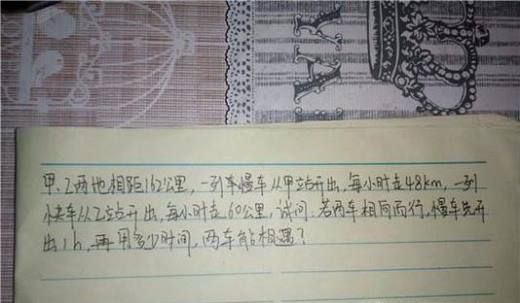 甲、乙两地相距162公里，一列车慢车从甲站开出，每小时走48km，一列
快车从乙站开出，每小时走60公里，试问：若两车相向而行，慢车先开
出1h，再用多少时间，两车能相遇？